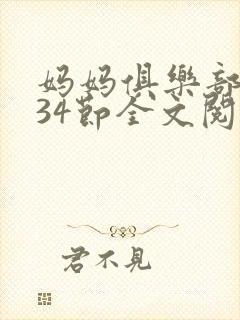 妈妈俱樂部
34節全文閱
君不見